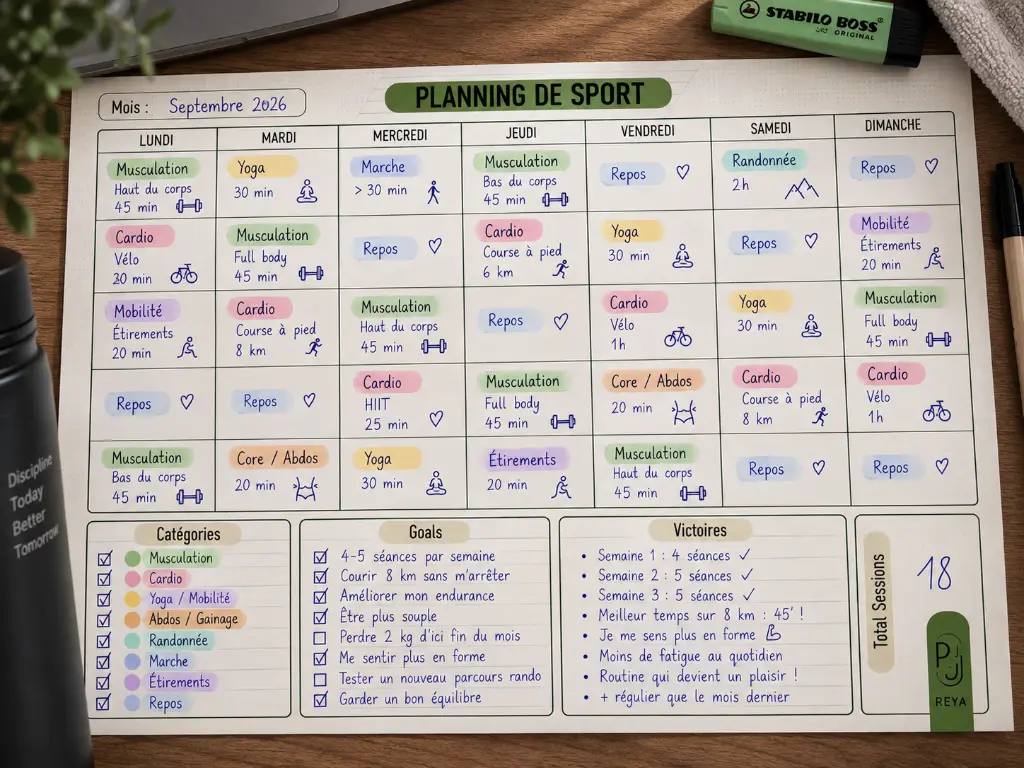 STABILO BOSS
ORIGINAL
Mois : Septembre 2026
PLANNING DE SPORT
LUNDI MARDI MERCREDI JEUDI VENDREDI SAMEDI DIMANCHE
Musculation
Haut du corps
45 min
Yoga
30 min
Marche
> 30 min
Musculation
Bas du corps
45 min
Repos
Randonnée
2h
Repos
Cardio
Vélo
30 min
Musculation
Full body
45 min
Repos
Cardio
Course à pied
6 km
Yoga
30 min
Repos
Mobilité
Étirements
20 min
Mobilité
Étirements
20 min
Cardio
Course à pied
8 km
Musculation
Haut du corps
45 min
Repos
Cardio
Vélo
1h
Yoga
30 min
Musculation
Full body
45 min
Repos
Repos
Cardio
HIIT
25 min
Musculation
Full body
45 min
Core / Abdos
20 min
Cardio
Course à pied
8 km
Cardio
Vélo
1h
Musculation
Bas du corps
45 min
Core / Abdos
20 min
Yoga
30 min
Étirements
20 min
Musculation
Haut du corps
45 min
Repos
Repos
Discipline
Today
Better
Tomorrow
Catégories
Musculation
Cardio
Yoga / Mobilité
Abdos / Gainage
Randonnée
Marche
Étirements
Repos
Goals
4-5 séances par semaine
Courir 8 km sans m'arrêter
Améliorer mon endurance
Être plus souple
Perdre 2 kg d'ici fin du mois
Me sentir plus en forme
Tester un nouveau parcours rando
Garder un bon équilibre
Victoires
• Semaine 1 : 4 séances ✓
• Semaine 2 : 5 séances ✓
• Semaine 3 : 5 séances ✓
• Meilleur temps sur 8 km : 45' !
• Je me sens plus en forme
• Moins de fatigue au quotidien
• Routine qui devient un plaisir !
• + régulier que le mois dernier
Total Sessions
18
REYA